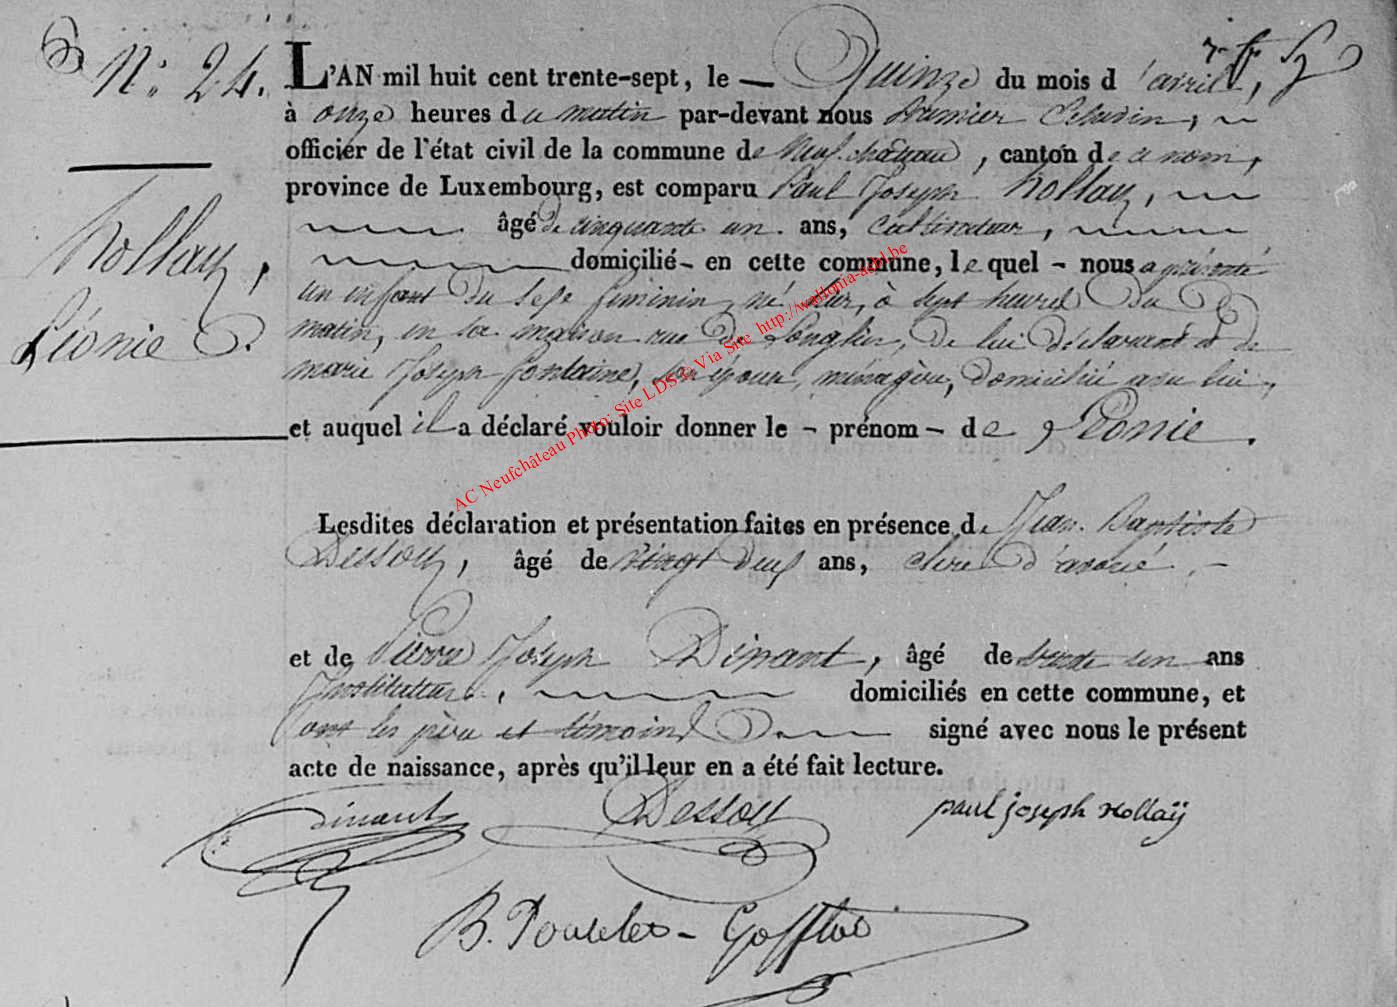 N.° 24.
L'AN mil huit cent trente-sept, le — Quinze du mois d'avril,
à onze heures du matin par-devant nous premier Echevin,
officiér de l'état civil de la commune de Neufchâteau, canton de ce nom,
province de Luxembourg, est comparu Paul Joseph Hollay,
âgé de cinquante un ans, cultivateur,
domicilié - en cette commune, le quel - nous a présenté
un enfant du sexe féminin, né hier, à sept heures du
matin, en sa maison rue de Longlier, de lui déclarant et de
marie Joseph fontaine, son épouse, ménagère, domiciliée avec lui,
et auquel il a déclaré vouloir donner le - prénom - de Léonie.
Hollay,
Léonie.
Lesdites déclaration et présentation faites en présence de Jean Baptiste
Dessoy, âgé de vingt deux ans, clerc d'avoué
et de Pierre Joseph Dinant, âgé de trente un ans
Instituteur, domiciliés en cette commune, et
ont les père et témoins signé avec nous le présent
acte de naissance, après qu'il leur en a été fait lecture.
Dinant Dessoy paul joseph Hollaÿ
B. Poncelet - Goffloe
AC Neufchâteau Photo: Site LDS © Via Site http://wallonia-asbl.be